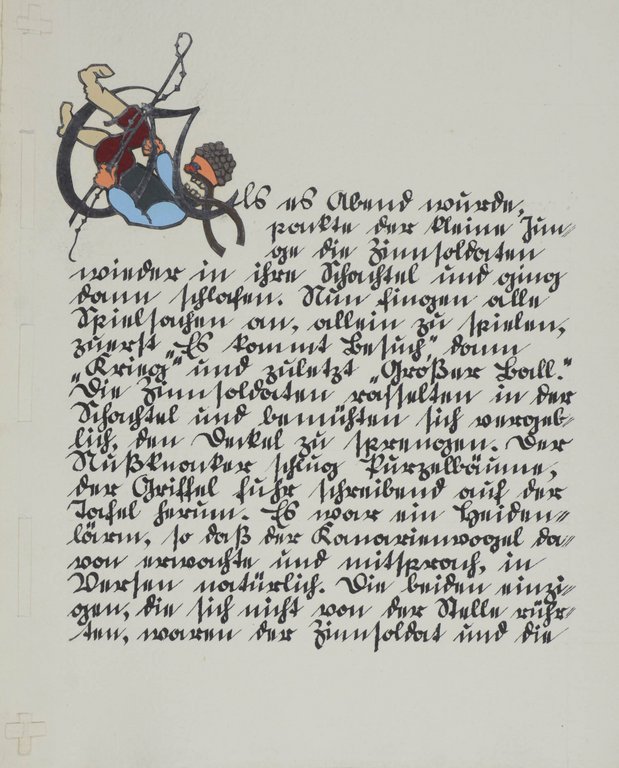 Als es Abend wurde,
packte der kleine Jun-
ge die Zinnsoldaten
wieder in ihre Schachtel und ging
dann schlafen. Nun fingen alle
Spielsachen an, allein zu spielen,
zuerst „Es kommt Besuch“, dann
„Krieg“ und zuletzt „Großer Ball.“
Die Zinnsoldaten rasselten in der
Schachtel und bemühten sich vergeb-
lich, den Deckel zu sprengen. Der
Nußknacker schlug Purzelbäume,
der Griffel fuhr schreibend auf der
Tafel herum. Es war ein Heiden-
lärm, so daß der Kanarienvogel da-
von erwachte und mitsprach, in
Versen natürlich. Die beiden einzi-
gen, die sich nicht von der Stelle rühr-
ten, waren der Zinnsoldat und die